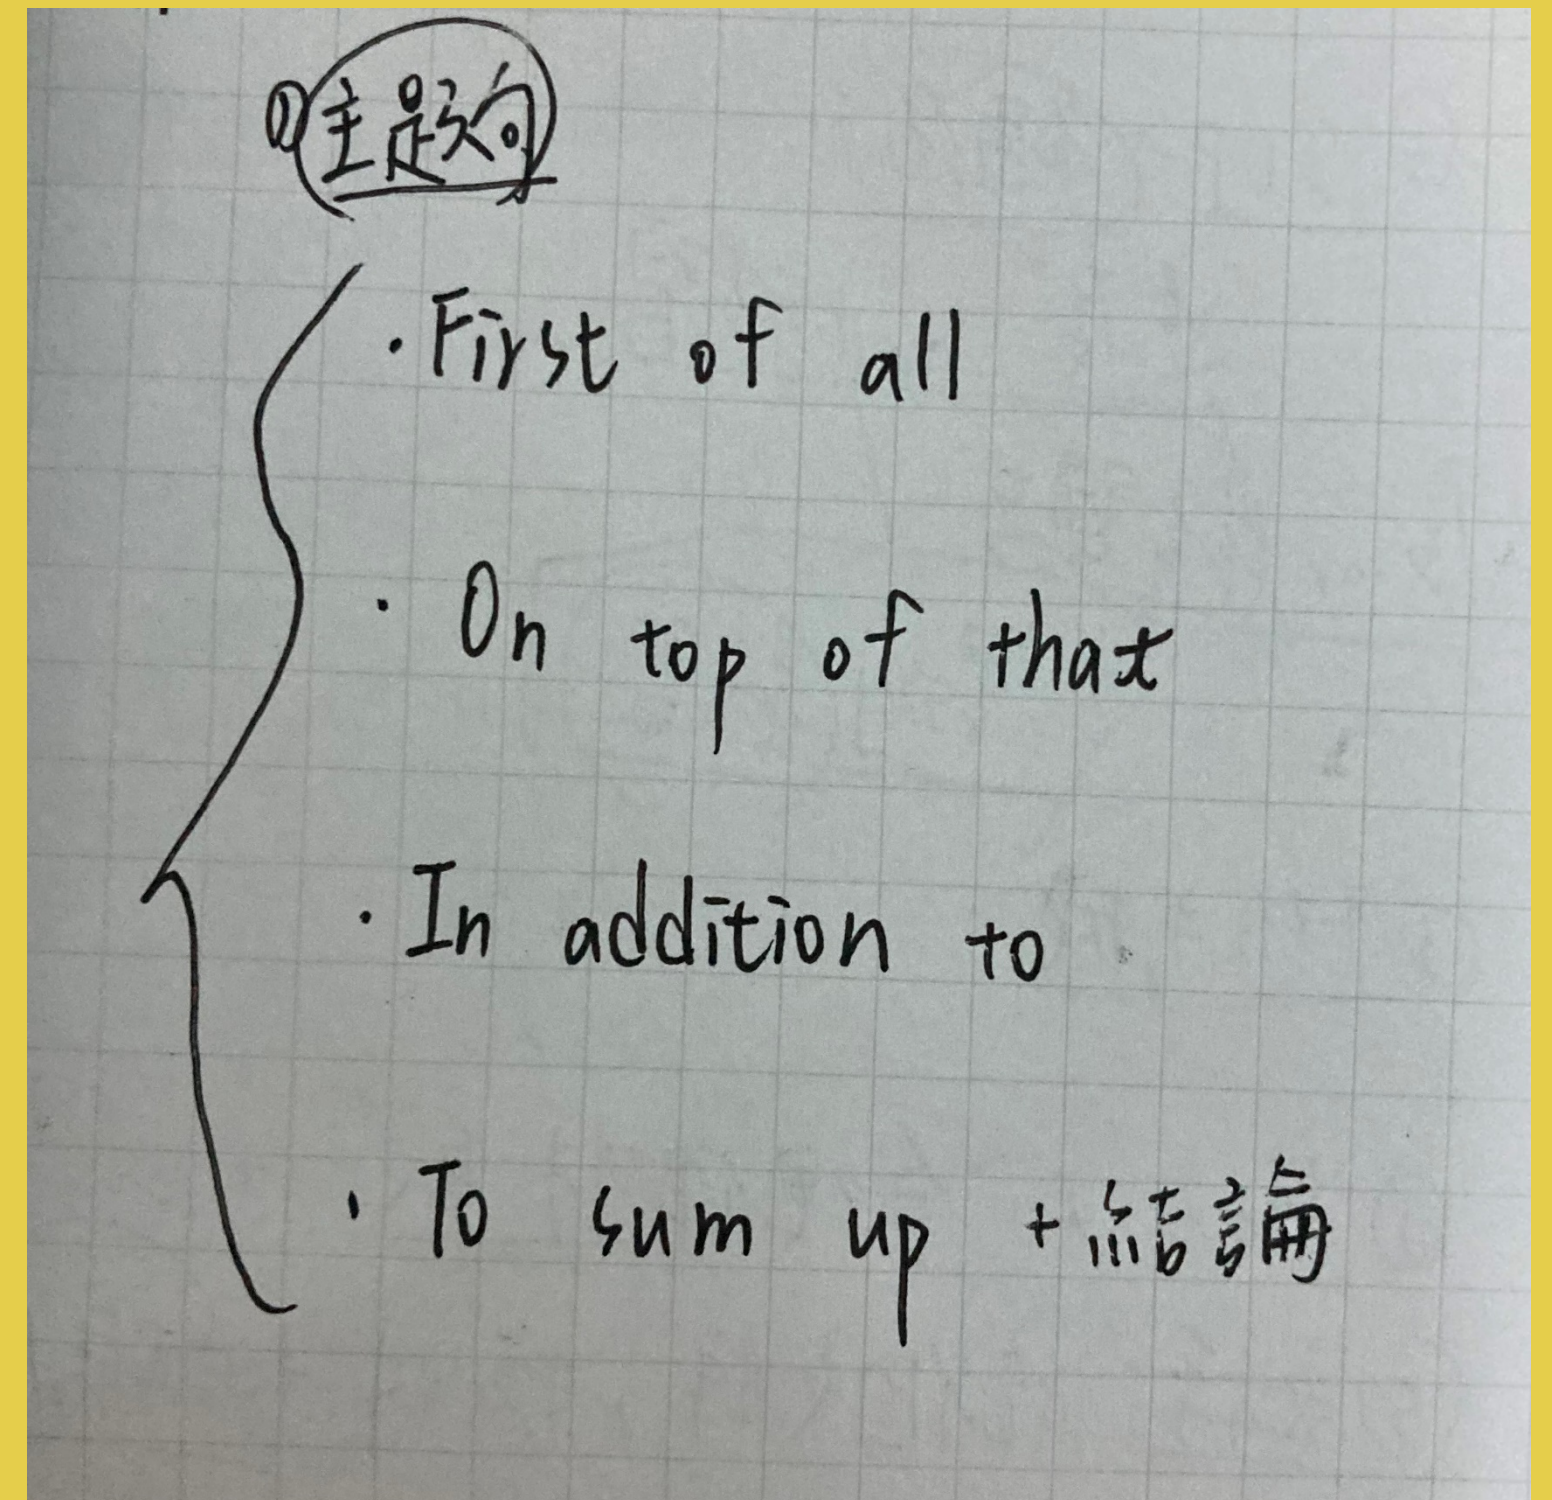 ① 主題句
· First of all
· On top of that
· In addition to
· To sum up + 結論